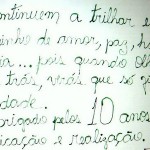 ntinuem a trilhar e
inho de amor, paz, h
ia... pois quando olh
trás, virás que só g
dade.
rigado pelos 10 anos
icação e realização.